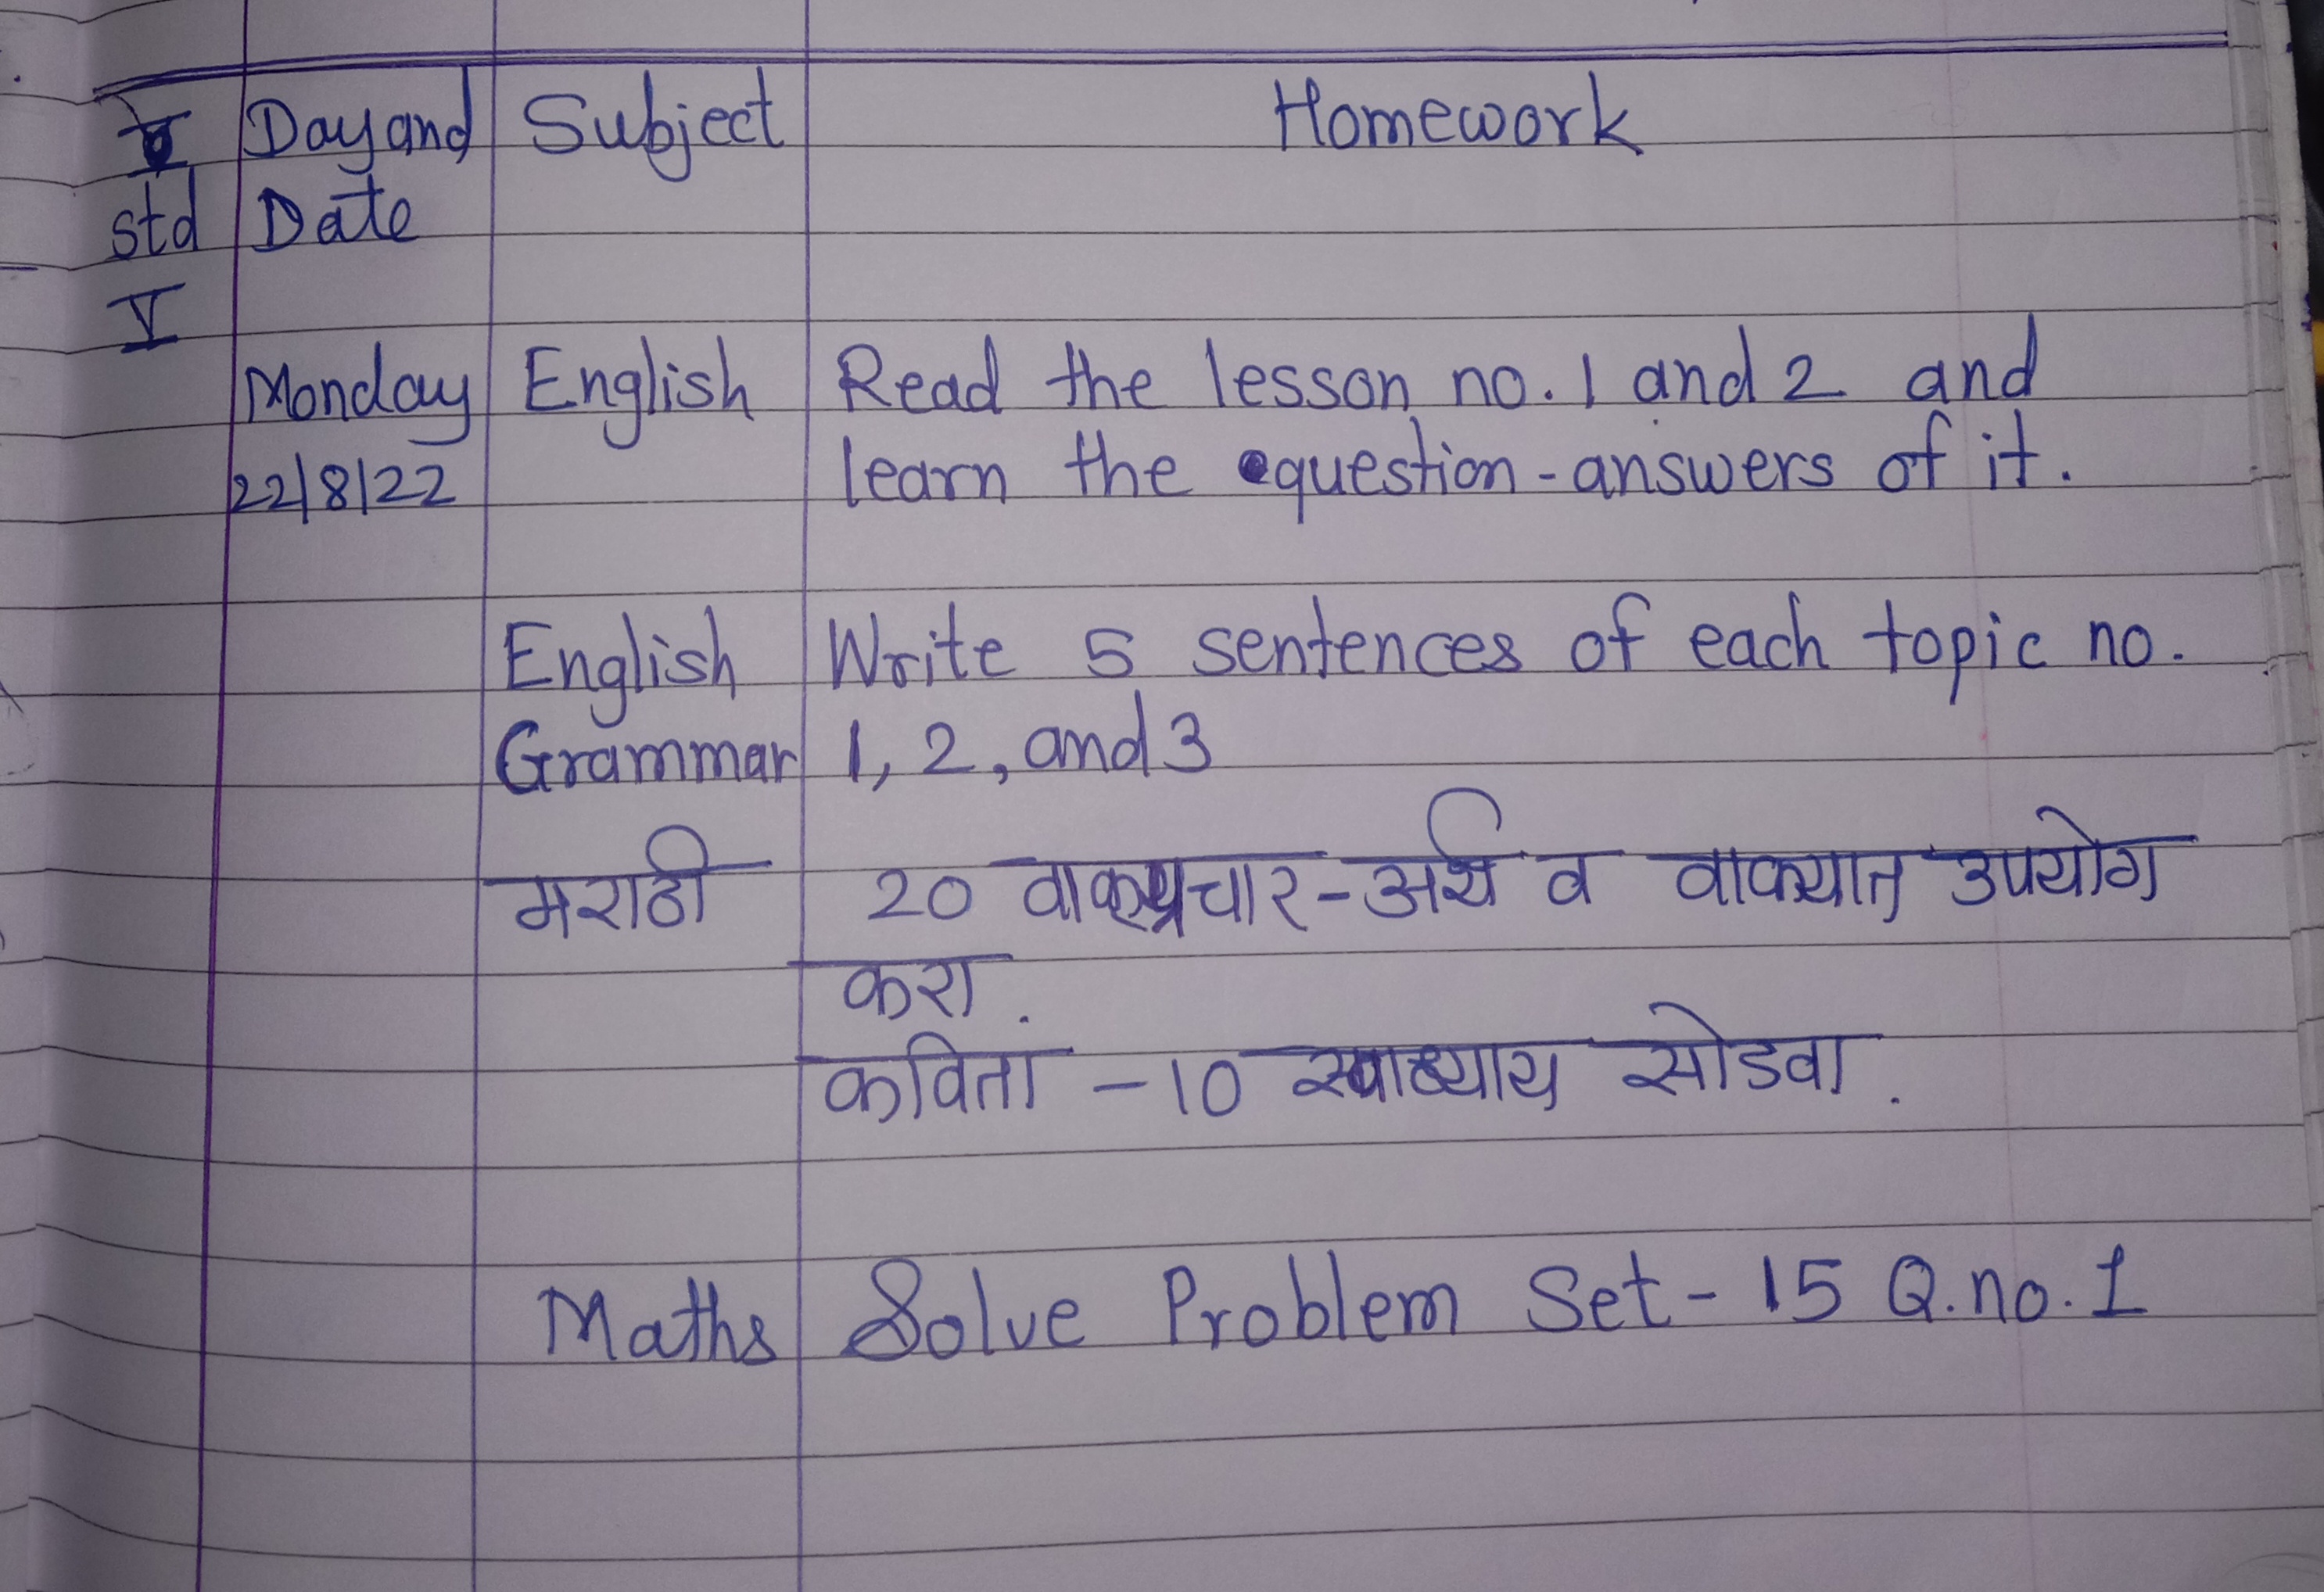 Day and Subject Homework
std Date
V
Monday English Read the lesson no. 1 and 2 and
22/8/22 learn the question-answers of it.
English Write 5 sentences of each topic no.
Grammar 1, 2, and 3
मराठी 20 वाक्यप्रचार-अर्थ व वाक्यात उपयोग
करा.
कविता - 10 स्वाध्याय सोडवा.
Maths Solve Problem Set - 15 Q.no. 1